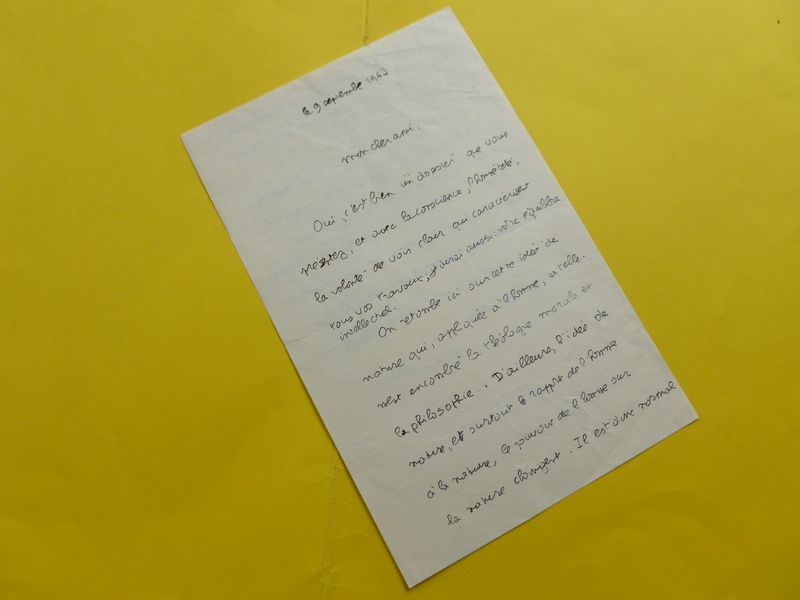 le 9 septembre 1962
Mon cher ami,
Oui, c'est bien "un dossier" que vous
mettez, et avec la conscience, l'honnêteté,
la volonté de voir clair qui caractérisent
tous vos travaux, et ainsi aussi votre équilibre
intellectuel.
On retombe ici sur cette idée de
nature qui, appliquée à l'homme, a telle-
ment encombré la théologie morale et
la philosophie... D'ailleurs, l'idée de
nature, et surtout le rapport de l'homme
à la nature, le pouvoir de l'homme sur
la nature changent. Il est donc normal